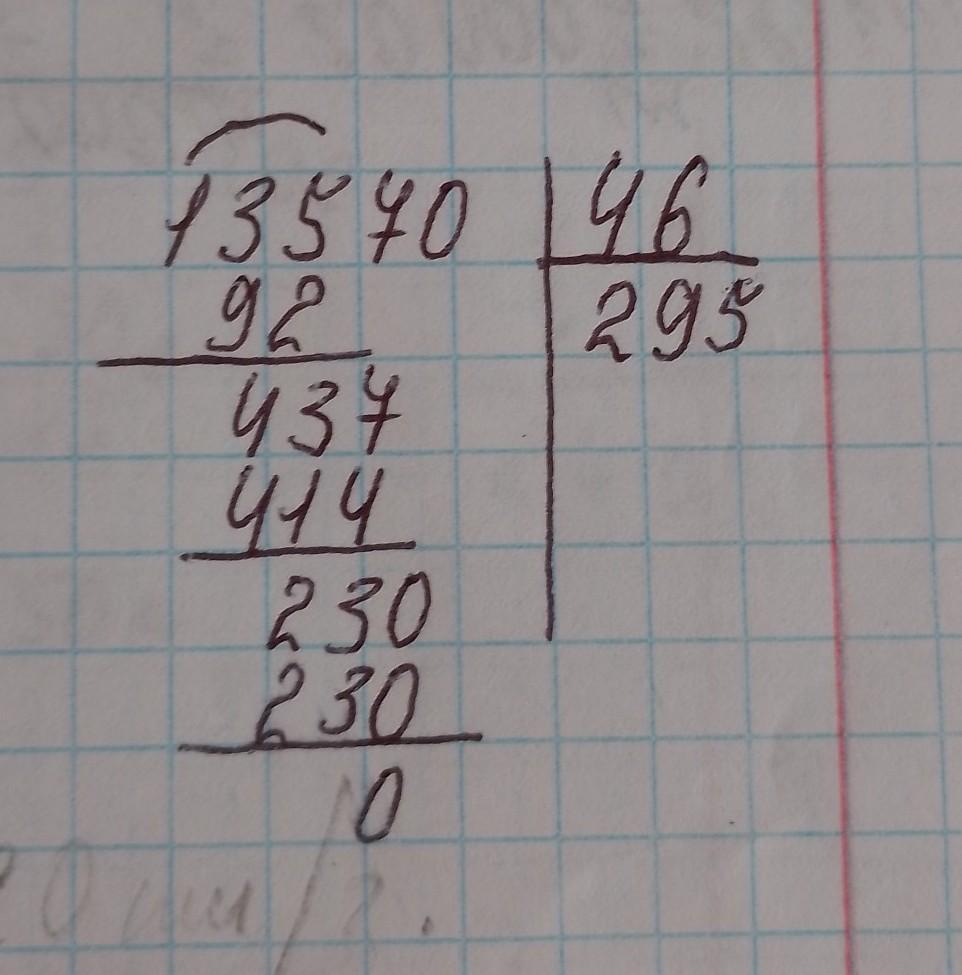 13570 46
92 295
437
414
230
230
0